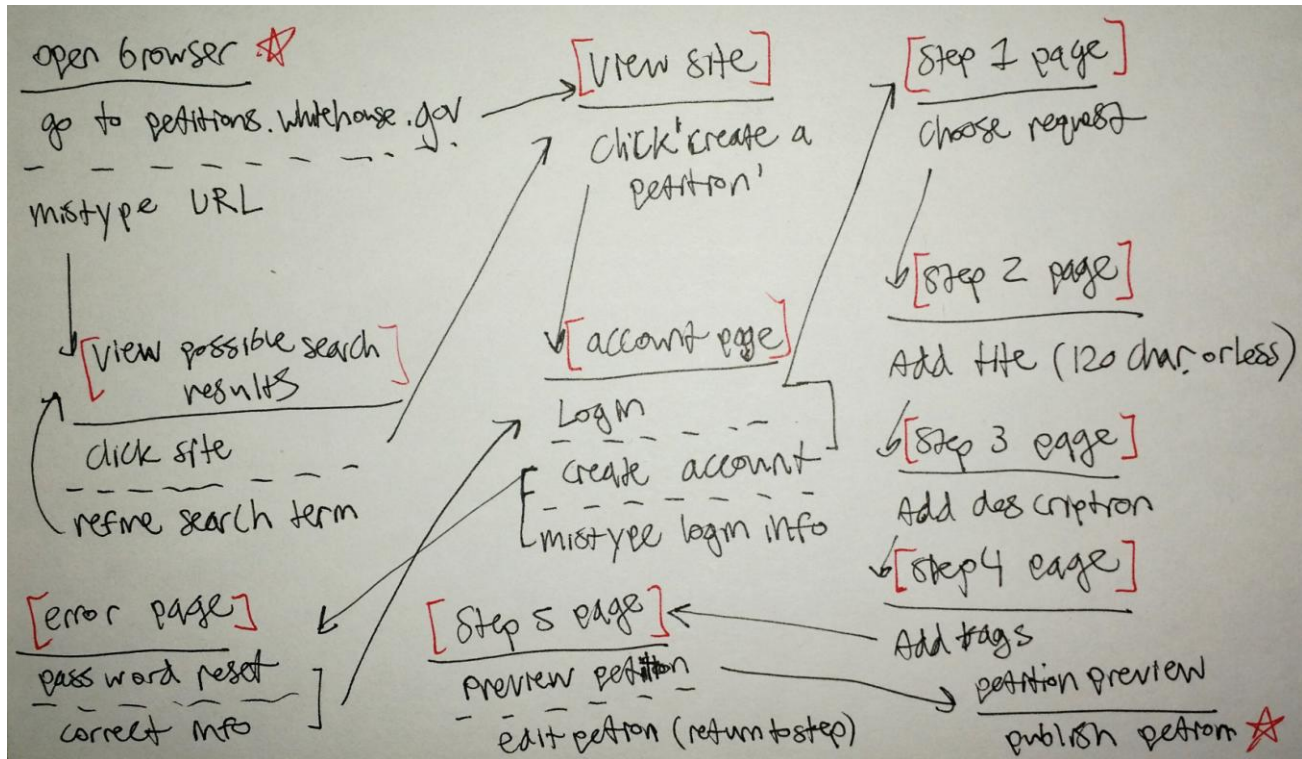 open browser
go to petitions.whitehouse.gov
mistype URL
[view possible search
results]
click site
refine search term
[error page]
password reset
correct info
[view site]
click 'create a
petition'
[account page]
Login
create account
mistype login info
[Step 5 page]
preview petition
edit petion (return to step)
[Step 1 page]
choose request
[Step 2 page]
Add title (120 char. or less)
[Step 3 page]
Add description
[Step 4 page]
Add tags
petition preview
publish petion